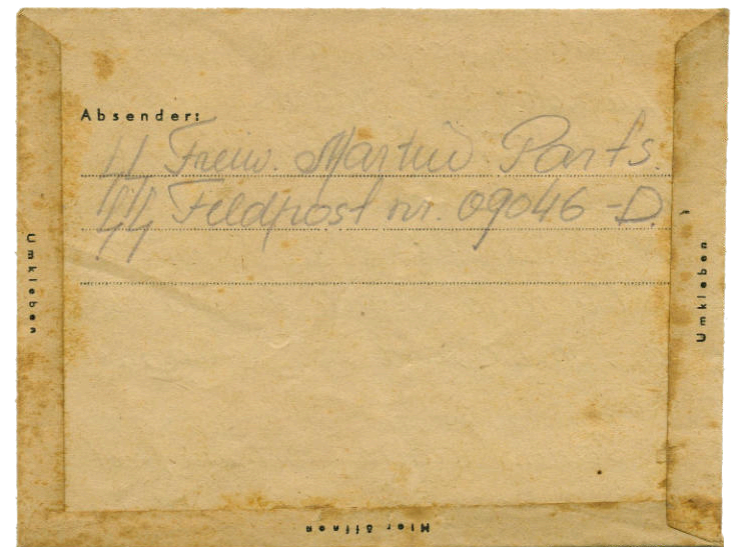 Absender:
SS Freiw. Martin Parts.
SS Feldpost nr. 09046-D.
Umkleben
Umkleben
Hier öffnen